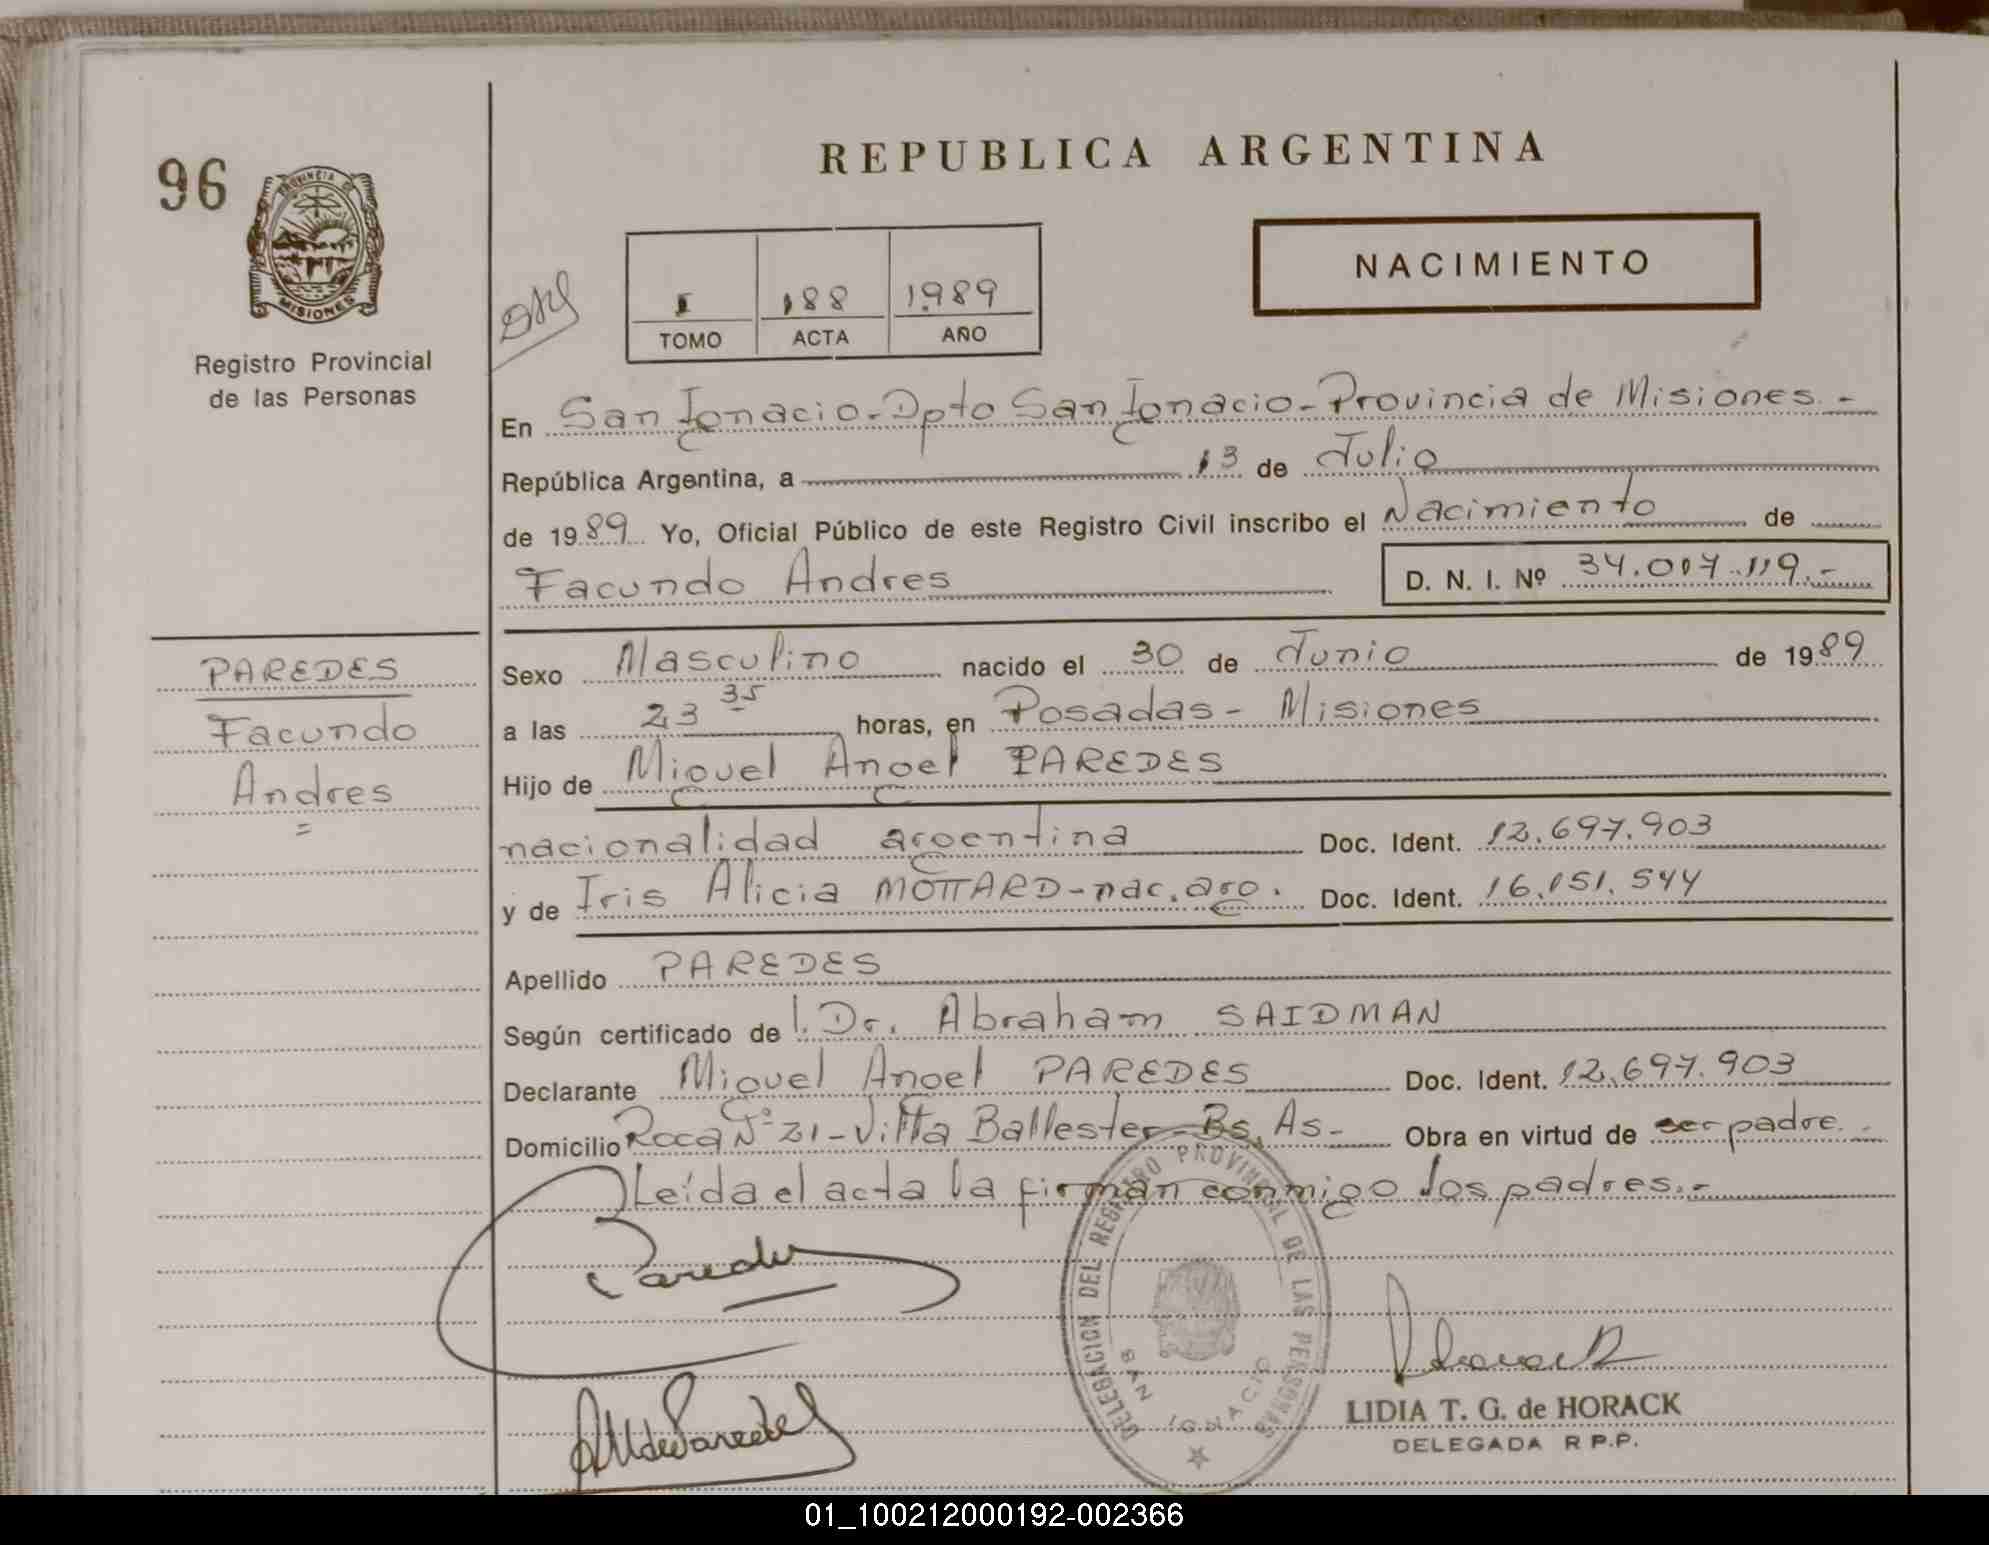 96
PROVINCIA DE
MISIONES
Registro Provincial
de las Personas
REPUBLICA ARGENTINA
I 188 1989
TOMO ACTA AÑO
NACIMIENTO
En San Ignacio-Dpto San Ignacio-Provincia de Misiones.-
República Argentina, a 13 de Julio
de 1989 Yo, Oficial Público de este Registro Civil inscribo el Nacimiento de
Facundo Andres
D. N. I. Nº 34.017.119.-
PAREDES
Facundo
Andres
=
Sexo Masculino nacido el 30 de Junio de 1989
a las 23 35 horas, en Posadas- Misiones
Hijo de Miguel Angel PAREDES
nacionalidad argentina Doc. Ident. 12.697.903
y de Iris Alicia MOTTARD-nac.arg. Doc. Ident. 16.151.544
Apellido PAREDES
Según certificado de l.Dr. Abraham SAIDMAN
Declarante Miguel Angel PAREDES Doc. Ident. 12.697.903
Domicilio Roca Nº 21-Villa Ballester-Bs.As- Obra en virtud de ser padre.-
Leída el acta la firman conmigo los padres.-
Paredes
DELEGACION DEL REGISTRO PROVINCIAL DE LAS PERSONAS
SAN IGNACIO
LIDIA T. G. de HORACK
DELEGADA R P.P.
01_100212000192-002366